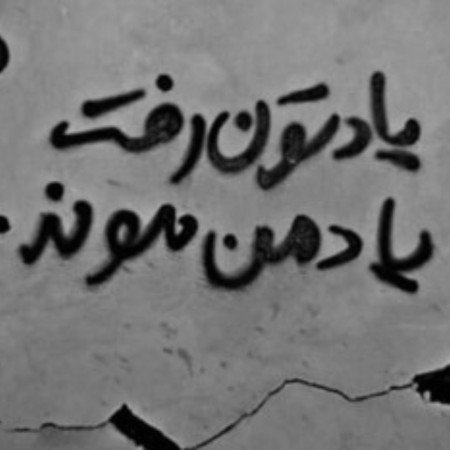 یادتون رفت
یاد من موند